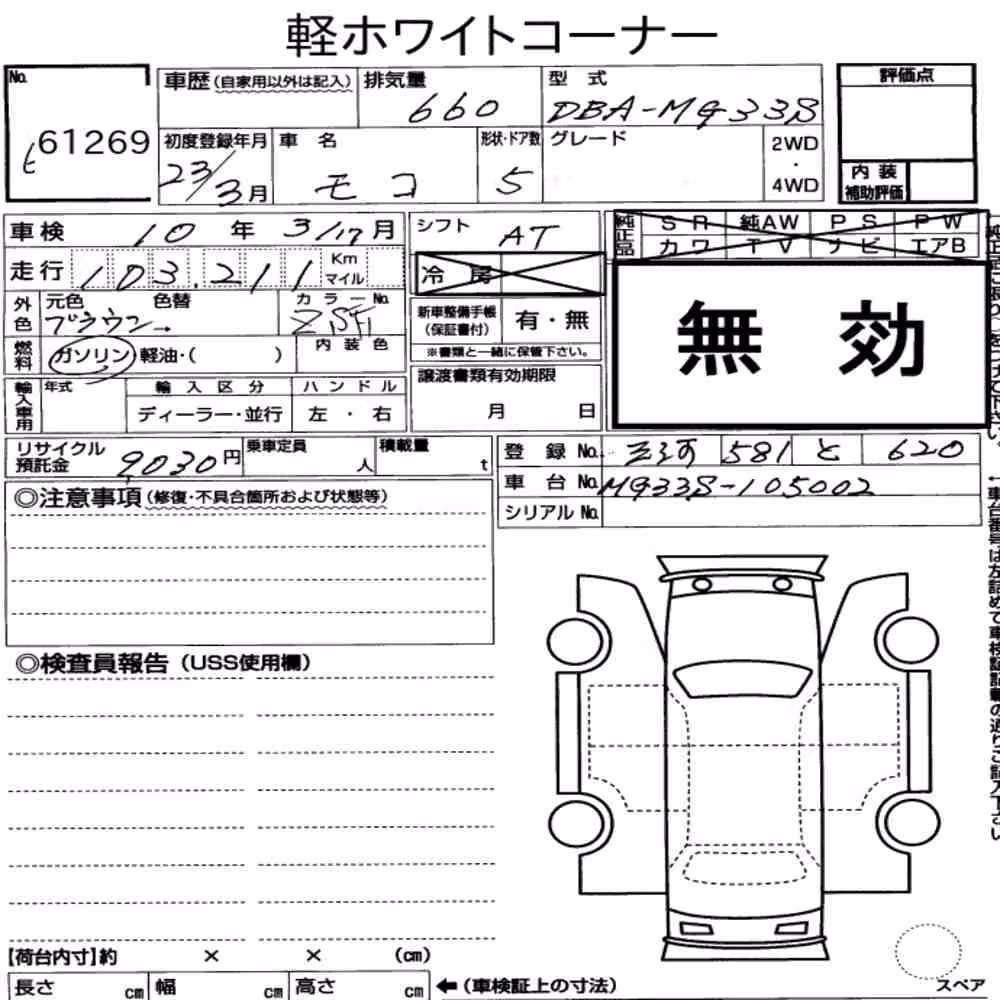 軽ホワイトコーナー
No. 61269
車歴(自家用以外は記入) 排気量 660 型式 DBA-MG33S 評価点
初度登録年月 23/3月 車名 モコ 形状・ドア数 5 グレード 2WD・4WD 内装補助評価
車検 10年 3/17月 シフト AT 純正品 SR 純AW PS PW
カワ TV ナビ エアB
走行 103,211 Km マイル 冷房
無効
外色 元色 ブラウン 色替 カラーNo.
新車整備手帳(保証書付) 有・無
燃料 ガソリン 軽油・( ) 内装色
※書類と一緒に保管下さい。
輸入車用 年式 輸入区分 ハンドル 譲渡書類有効期限
ディーラー・並行 左・右 月 日
リサイクル預託金 9030円 乗車定員 人 積載量 t 登録No. 581 と 620
車台No. MG33S-105002
◎注意事項(修復・不具合箇所および状態等) シリアルNo.
◎検査員報告(USS使用欄)
【荷台内寸】約 × × (cm)
長さ cm 幅 cm 高さ cm ←(車検証上の寸法) スペア